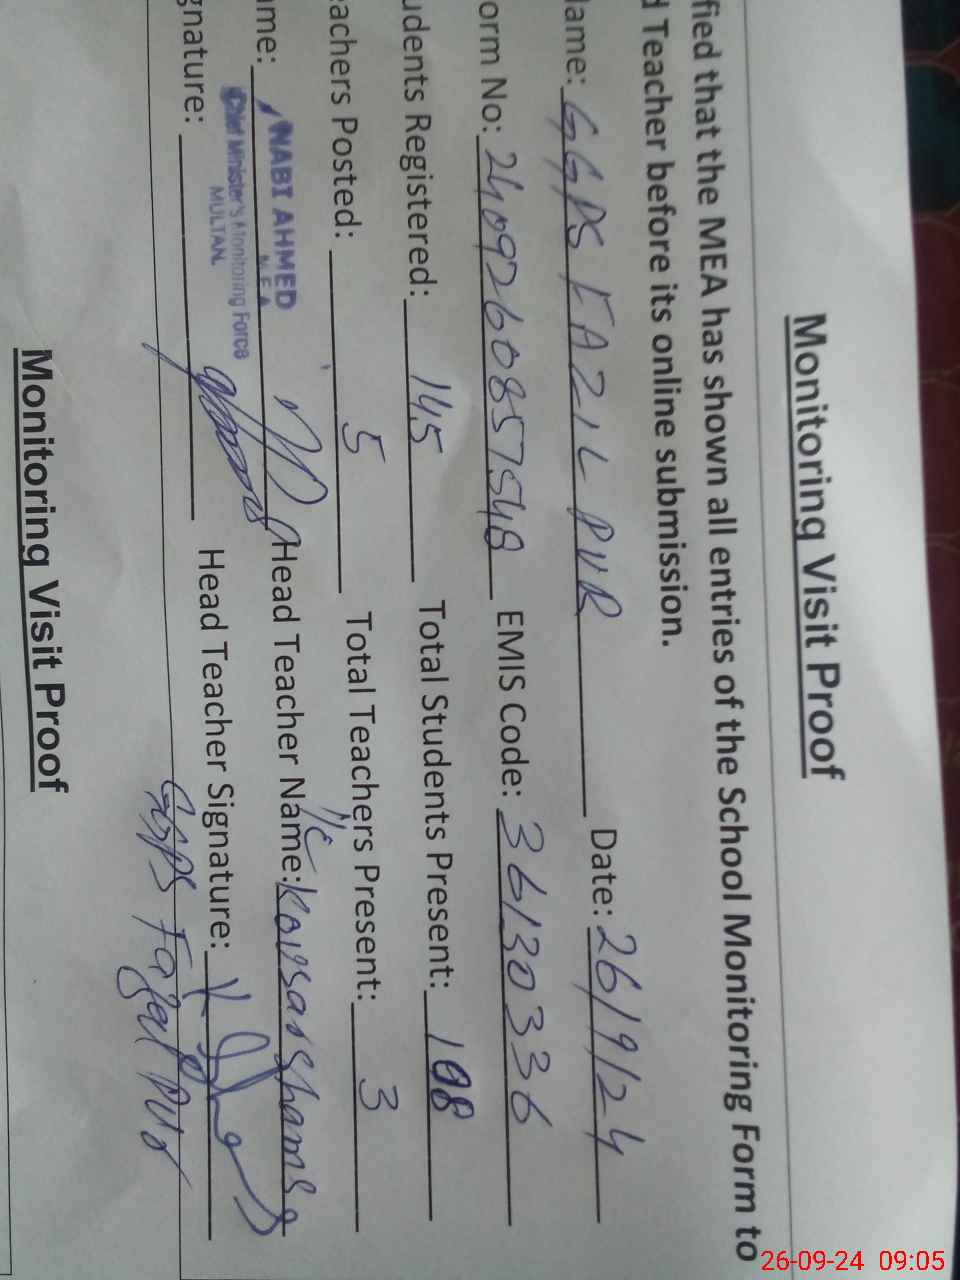 Monitoring Visit Proof
fied that the MEA has shown all entries of the School Monitoring Form to
d Teacher before its online submission.
lame: GGPS FAZIL PUR Date: 26/9/24
orm No: 2409260857548 EMIS Code: 36130336
udents Registered: 145 Total Students Present: 108
eachers Posted: 5 Total Teachers Present: 3
ame: NABI AHMED Head Teacher Name: I/C Kousar Shams
M.E.A
Chief Minister's Monitoring Force
MULTAN.
gnature: Head Teacher Signature:
GGPS Fazal Pur
Monitoring Visit Proof
26-09-24 09:05